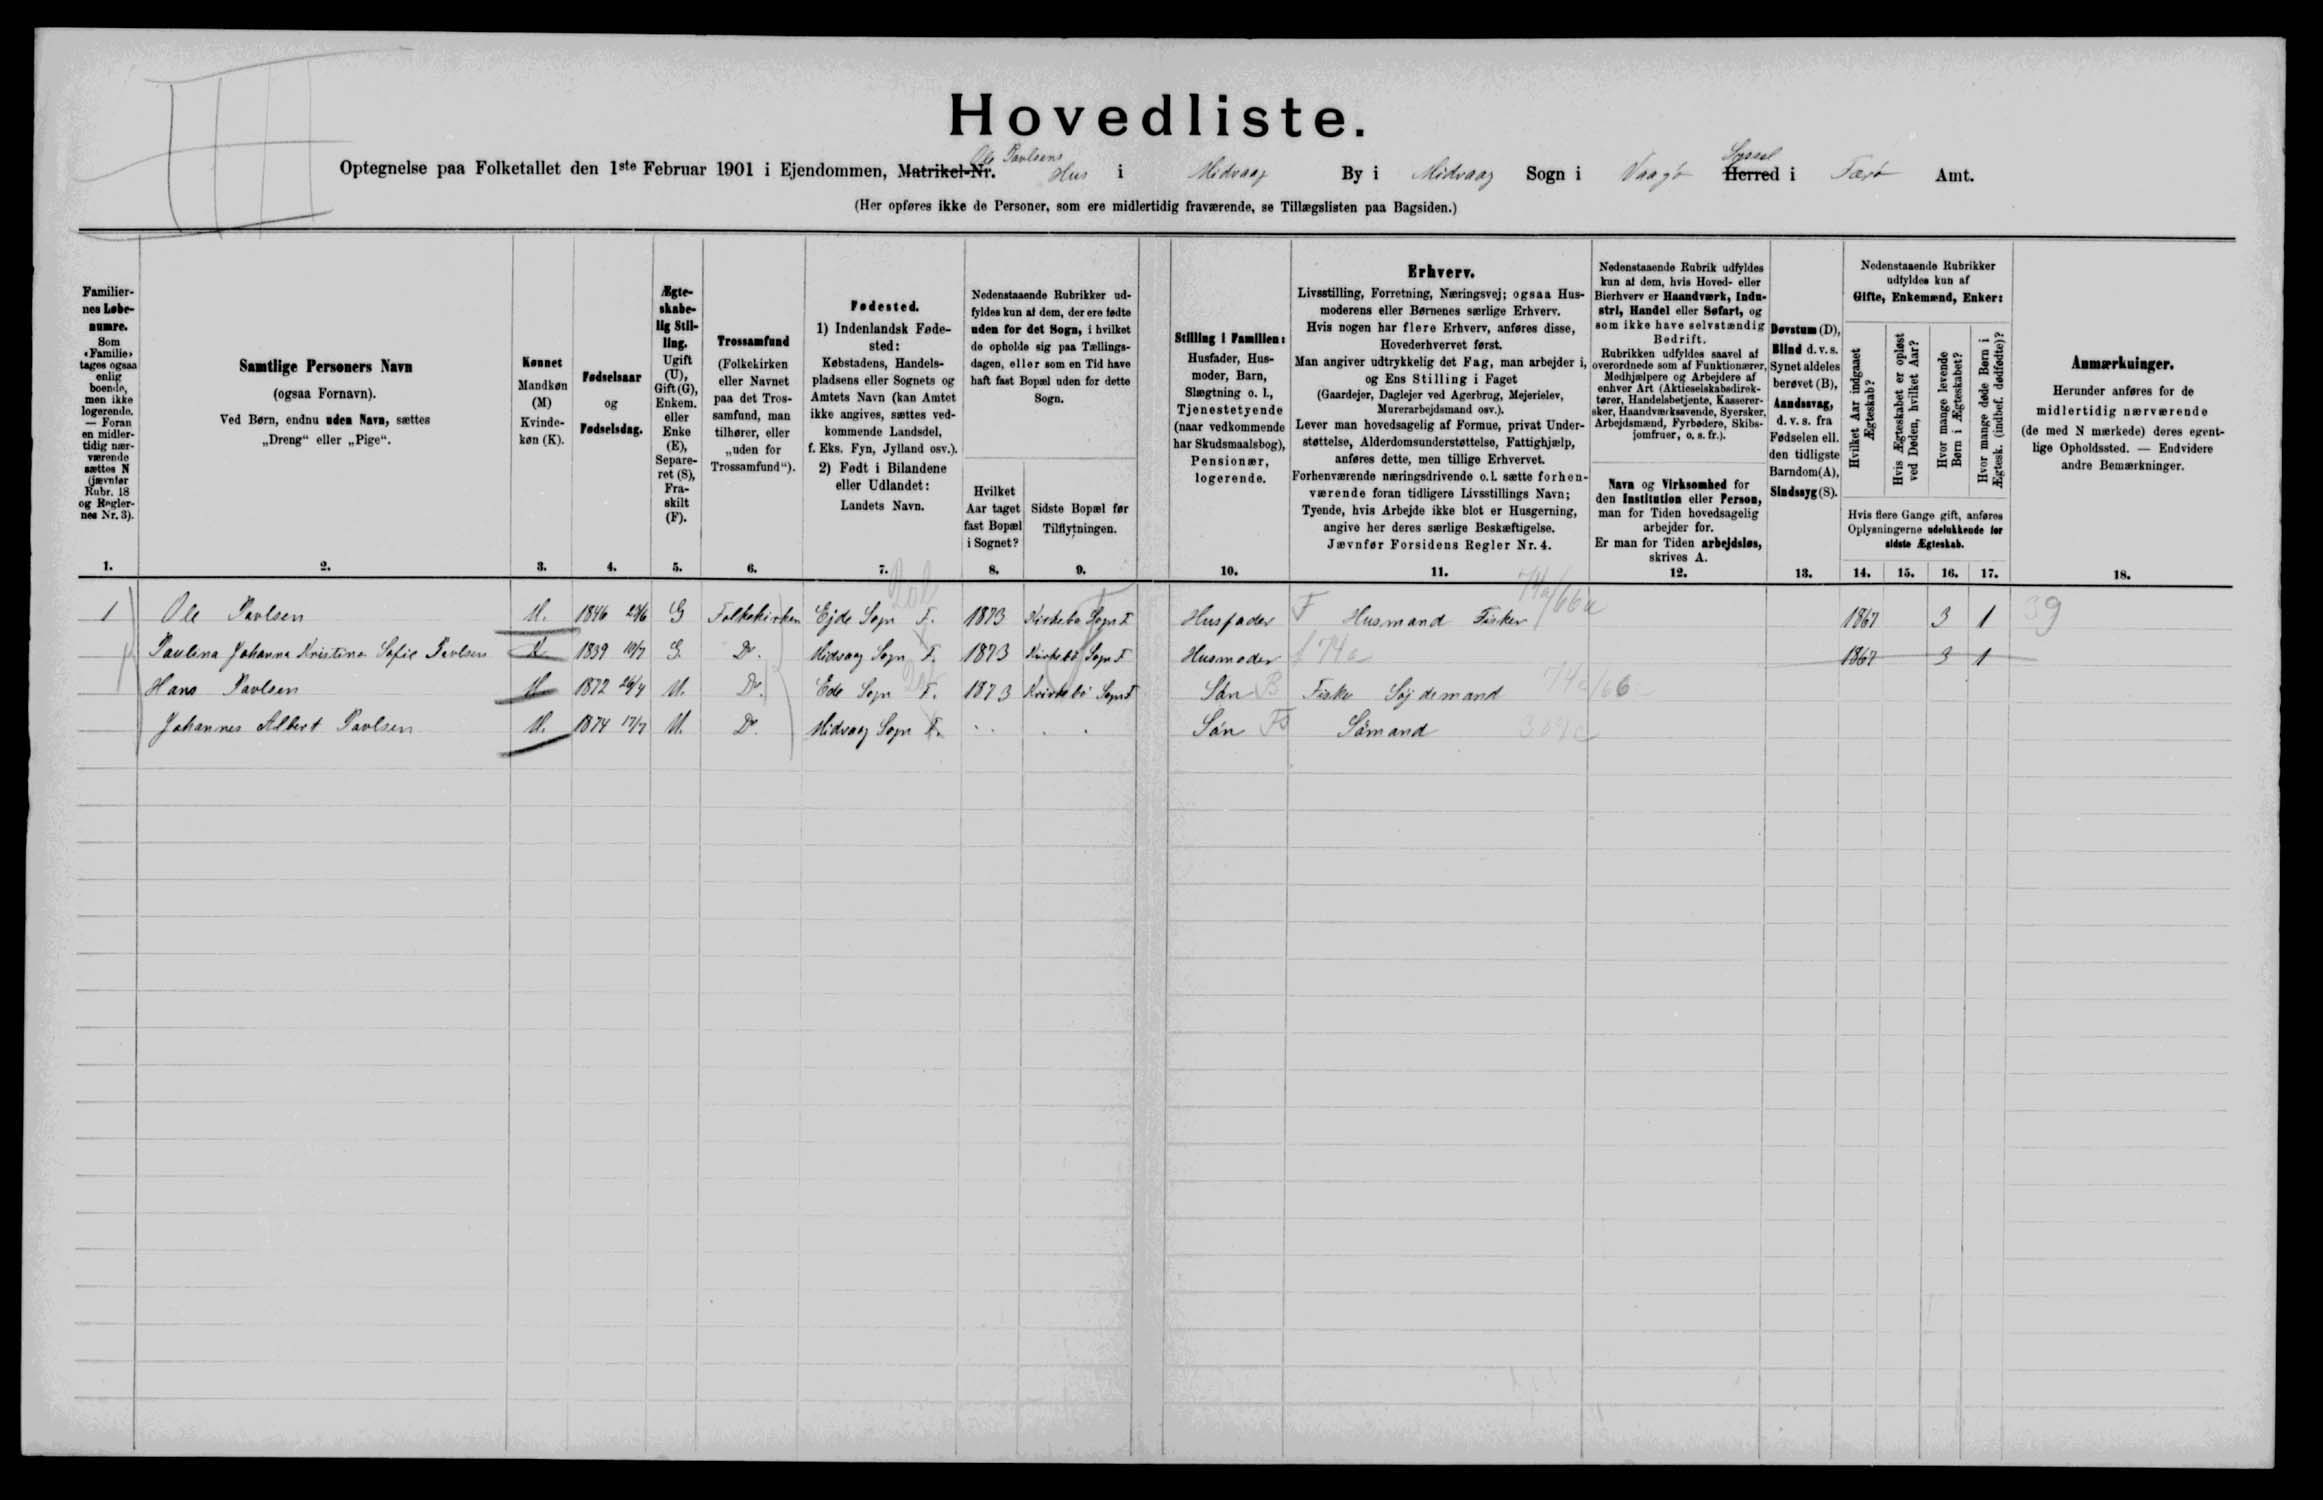 Hovedliste.
Ole Pavlsens Syssel
Optegnelse paa Folketallet den 1ste Februar 1901 i Ejendommen, Matrikel-Nr. Hus i Midvaag By i Midvaag Sogn i Vaagø Herred i Færø Amt.
(Her opføres ikke de Personer, som ere midlertidig fraværende, se Tillægslisten paa Bagsiden.)
Familier-
nes Løbe-
numre.
Som
«Familie»
tages ogsaa
enlig
boende,
men ikke
logerende.
— Foran
en midler-
tidig nær-
værende
sættes N
(jævnfør
Rubr. 18
og Regler-
nes Nr. 3).
1.
Samtlige Personers Navn
(ogsaa Fornavn).
Ved Børn, endnu uden Navn, sættes
„Dreng“ eller „Pige“.
2.
Kønnet
Mandkøn
(M)
Kvinde-
køn (K).
3.
Fødselsaar
og
Fødselsdag.
4.
Ægte-
skabe-
lig Stil-
ling.
Ugift
(U),
Gift (G),
Enkem.
eller
Enke
(E),
Separe-
ret (S),
Fra-
skilt
(F).
5.
Trossamfund
(Folkekirken
eller Navnet
paa det Tros-
samfund, man
tilhører, eller
„uden for
Trossamfund“).
6.
Fødested.
1) Indenlandsk Føde-
sted:
Købstadens, Handels-
pladsens eller Sognets og
Amtets Navn (kan Amtet
ikke angives, sættes ved-
kommende Landsdel,
f. Eks. Fyn, Jylland osv.).
2) Født i Bilandene
eller Udlandet:
Landets Navn.
7.
Nedenstaaende Rubrikker ud-
fyldes kun af dem, der ere fødte
uden for det Sogn, i hvilket
de opholde sig paa Tællings-
dagen, eller som en Tid have
haft fast Bopæl uden for dette
Sogn.
Hvilket
Aar taget
fast Bopæl
i Sognet?
8.
Sidste Bopæl før
Tilflytningen.
9.
Stilling i Familien:
Husfader, Hus-
moder, Barn,
Slægtning o. l.,
Tjenestetyende
(naar vedkommende
har Skudsmaalsbog),
Pensionær,
logerende.
10.
Erhverv.
Livsstilling, Forretning, Næringsvej; ogsaa Hus-
moderens eller Børnenes særlige Erhverv.
Hvis nogen har flere Erhverv, anføres disse,
Hovederhvervet først.
Man angiver udtrykkelig det Fag, man arbejder i,
og Ens Stilling i Faget
(Gaardejer, Daglejer ved Agerbrug, Mejerielev,
Murerarbejdsmand osv.).
Lever man hovedsagelig af Formue, privat Under-
støttelse, Alderdomsunderstøttelse, Fattighjælp,
anføres dette, men tillige Erhvervet.
Forhenværende næringsdrivende o.l. sætte forhen-
værende foran tidligere Livsstillings Navn;
Tyende, hvis Arbejde ikke blot er Husgerning,
angive her deres særlige Beskæftigelse.
Jævnfør Forsidens Regler Nr. 4.
11.
Nedenstaaende Rubrik udfyldes
kun af dem, hvis Hoved- eller
Bierhverv er Haandværk, Indu-
stri, Handel eller Søfart, og
som ikke have selvstændig
Bedrift.
Rubrikken udfyldes saavel af
overordnede som af Funktionærer,
Medhjælpere og Arbejdere af
enhver Art (Aktieselskabsdirek-
tører, Handelsbetjente, Kasserer-
sker, Haandværkssvende, Syersker,
Arbejdsmænd, Fyrbødere, Skibs-
jomfruer, o. s. fr.).
Navn og Virksomhed for
den Institution eller Person,
man for Tiden hovedsagelig
arbejder for.
Er man for Tiden arbejdsløs,
skrives A.
12.
Døvstum (D),
Blind d. v. s.
Synet aldeles
berøvet (B),
Aandssvag,
d. v. s. fra
Fødselen ell.
den tidligste
Barndom (A),
Sindssyg (S).
13.
Nedenstaaende Rubrikker
udfyldes kun af
Gifte, Enkemænd, Enker:
Hvilket Aar indgaaet
Ægteskab?
Hvis Ægteskabet er opløst
ved Døden, hvilket Aar?
Hvor mange levende
Børn i Ægteskabet?
Hvor mange døde Børn i
Ægtesk. (indbef. dødfødte)?
Hvis flere Gange gift, anføres
Oplysningerne udelukkende for
sidste Ægteskab.
14. 15. 16. 17.
Anmærkninger.
Herunder anføres for de
midlertidig nærværende
(de med N mærkede) deres egent-
lige Opholdssted. — Endvidere
andre Bemærkninger.
18.
1 Ole Pavlsen M. 1846 24/6 G Folkekirken Ejde Sogn F. 1873 Kirkebø Sogn F Husfader F Husmand Fisker 74a/66a 1867 3 1 39
Pavlina Johanna Kristina Sofie Pavlsen K 1839 10/7 G. Do. Midvaag Sogn F. 1873 Kirkebø Sogn F Husmoder f 74a 1867 3 1
Hans Pavlsen M 1872 26/4 U. Do. Ede Sogn F. 1873 Kirkebø Sogn F Søn B Fisker 74a/66
Johannes Albert Pavlsen M. 1874 17/7 U. Do. Midvaag Sogn F. Søn Sømand